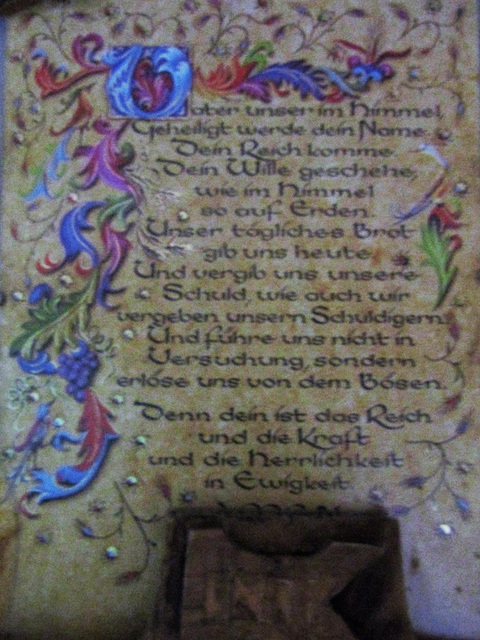 Vater unser im Himmel,
Geheiligt werde dein Name.
Dein Reich komme.
Dein Wille geschehe,
wie im Himmel
so auf Erden.
Unser tägliches Brot
gib uns heute.
Und vergib uns unsere
Schuld, wie auch wir
vergeben unsern Schuldigern.
Und führe uns nicht in
Versuchung, sondern
erlöse uns von dem Bösen.
Denn dein ist das Reich
und die Kraft
und die Herrlichkeit
in Ewigkeit